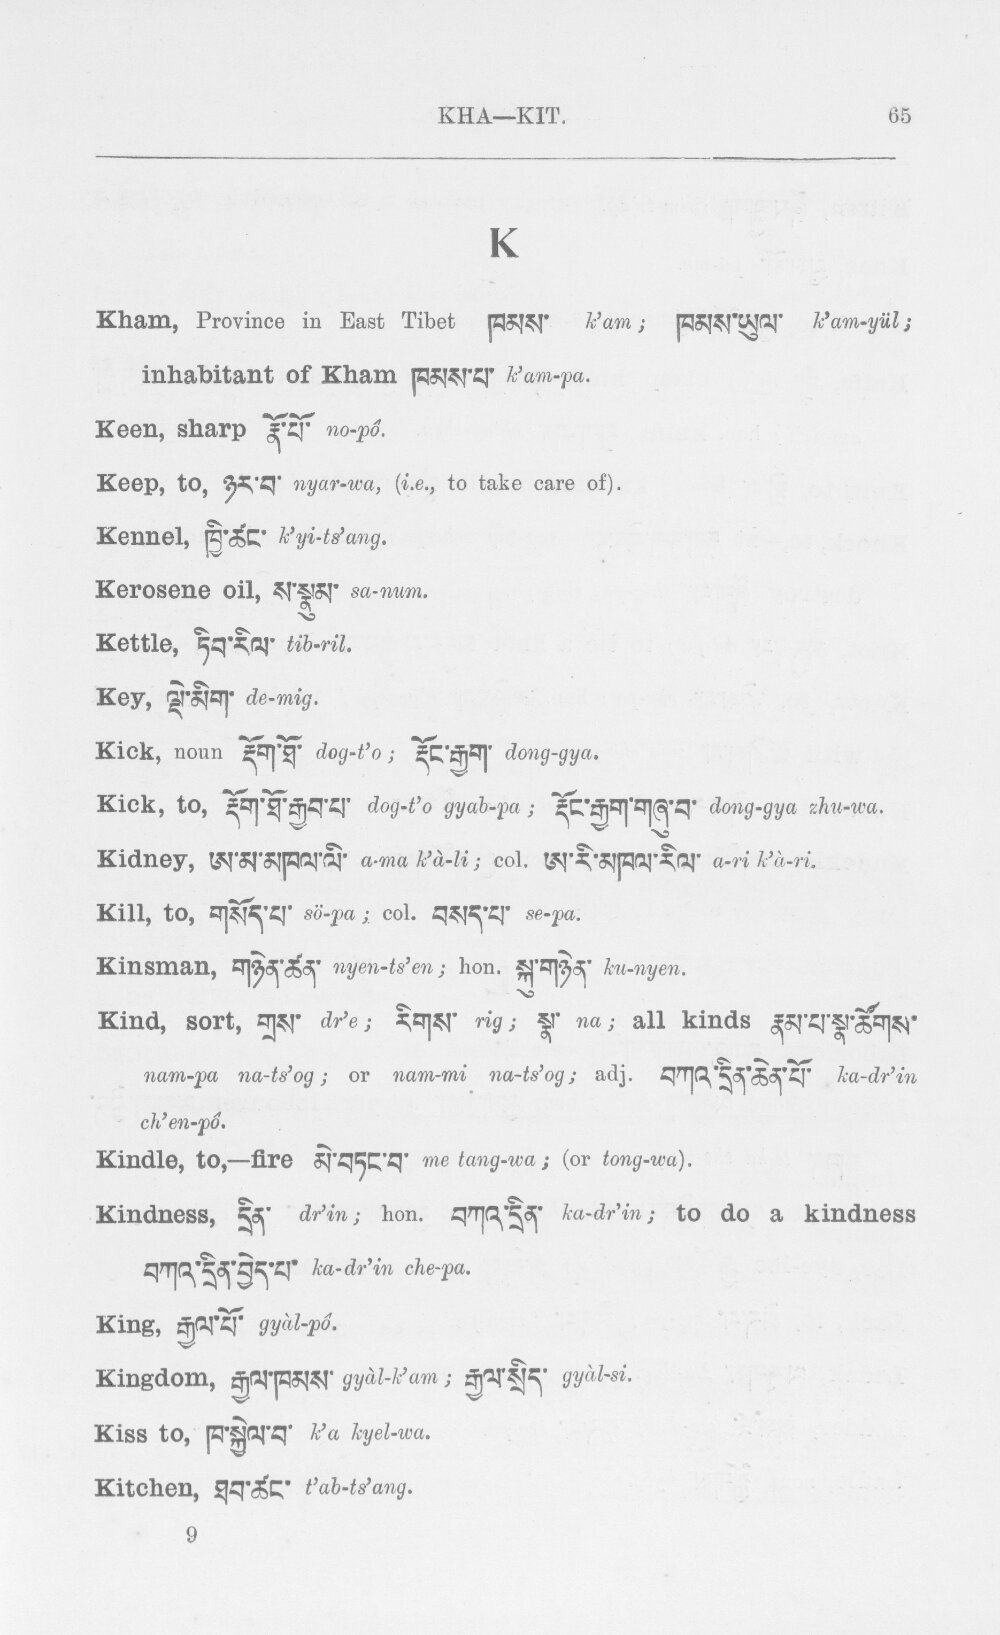 KHA—KIT. 65
K
Kham, Province in East Tibet ཁམས་ k’am ; ཁམས་ཡུལ་ k’am-yül ;
inhabitant of Kham ཁམས་པ་ k’am-pa.
Keen, sharp རྣོ་པོ་ no-pó.
Keep, to, ཉར་བ་ nyar-wa, (i.e., to take care of).
Kennel, ཁྱི་ཚང་ k’yi-ts’ang.
Kerosene oil, ས་སྣུམ་ sa-num.
Kettle, ཏིབ་རིལ་ tib-ril.
Key, ལྡེ་མིག་ de-mig.
Kick, noun རྡོག་ཐོ་ dog-t’o ; རྡོང་རྒྱག་ dong-gya.
Kick, to, རྡོག་ཐོ་རྒྱབ་པ་ dog-t’o gyab-pa ; རྡོང་རྒྱག་གཞུ་བ་ dong-gya zhu-wa.
Kidney, ཨ་མ་མཁལ་ལི་ a-ma k’à-li ; col. ཨ་རི་མཁལ་རིལ་ a-ri k’à-ri.
Kill, to, གསོད་པ་ sö-pa ; col. བསད་པ་ se-pa.
Kinsman, གཉེན་ཚན་ nyen-ts’en ; hon. སྐུ་གཉེན་ ku-nyen.
Kind, sort, གྲས་ dr’e ; རིགས་ rig ; སྣ་ na ; all kinds རྣམ་པ་སྣ་ཚོགས་
nam-pa na-ts’og ; or nam-mi na-ts’og ; adj. བཀའ་དྲིན་ཆེན་པོ་ ka-dr’in
ch’en-pó.
Kindle, to,—fire མེ་བཏང་བ་ me tang-wa ; (or tong-wa).
Kindness, དྲིན་ dr’in ; hon. བཀའ་དྲིན་ ka-dr’in ; to do a kindness
བཀའ་དྲིན་བྱེད་པ་ ka-dr’in che-pa.
King, རྒྱལ་པོ་ gyàl-pó.
Kingdom, རྒྱལ་ཁམས་ gyàl-k’am ; རྒྱལ་སྲིད་ gyàl-si.
Kiss to, ཁ་སྐྱེལ་བ་ k’a kyel-wa.
Kitchen, ཐབ་ཚང་ t’ab-ts’ang.
9